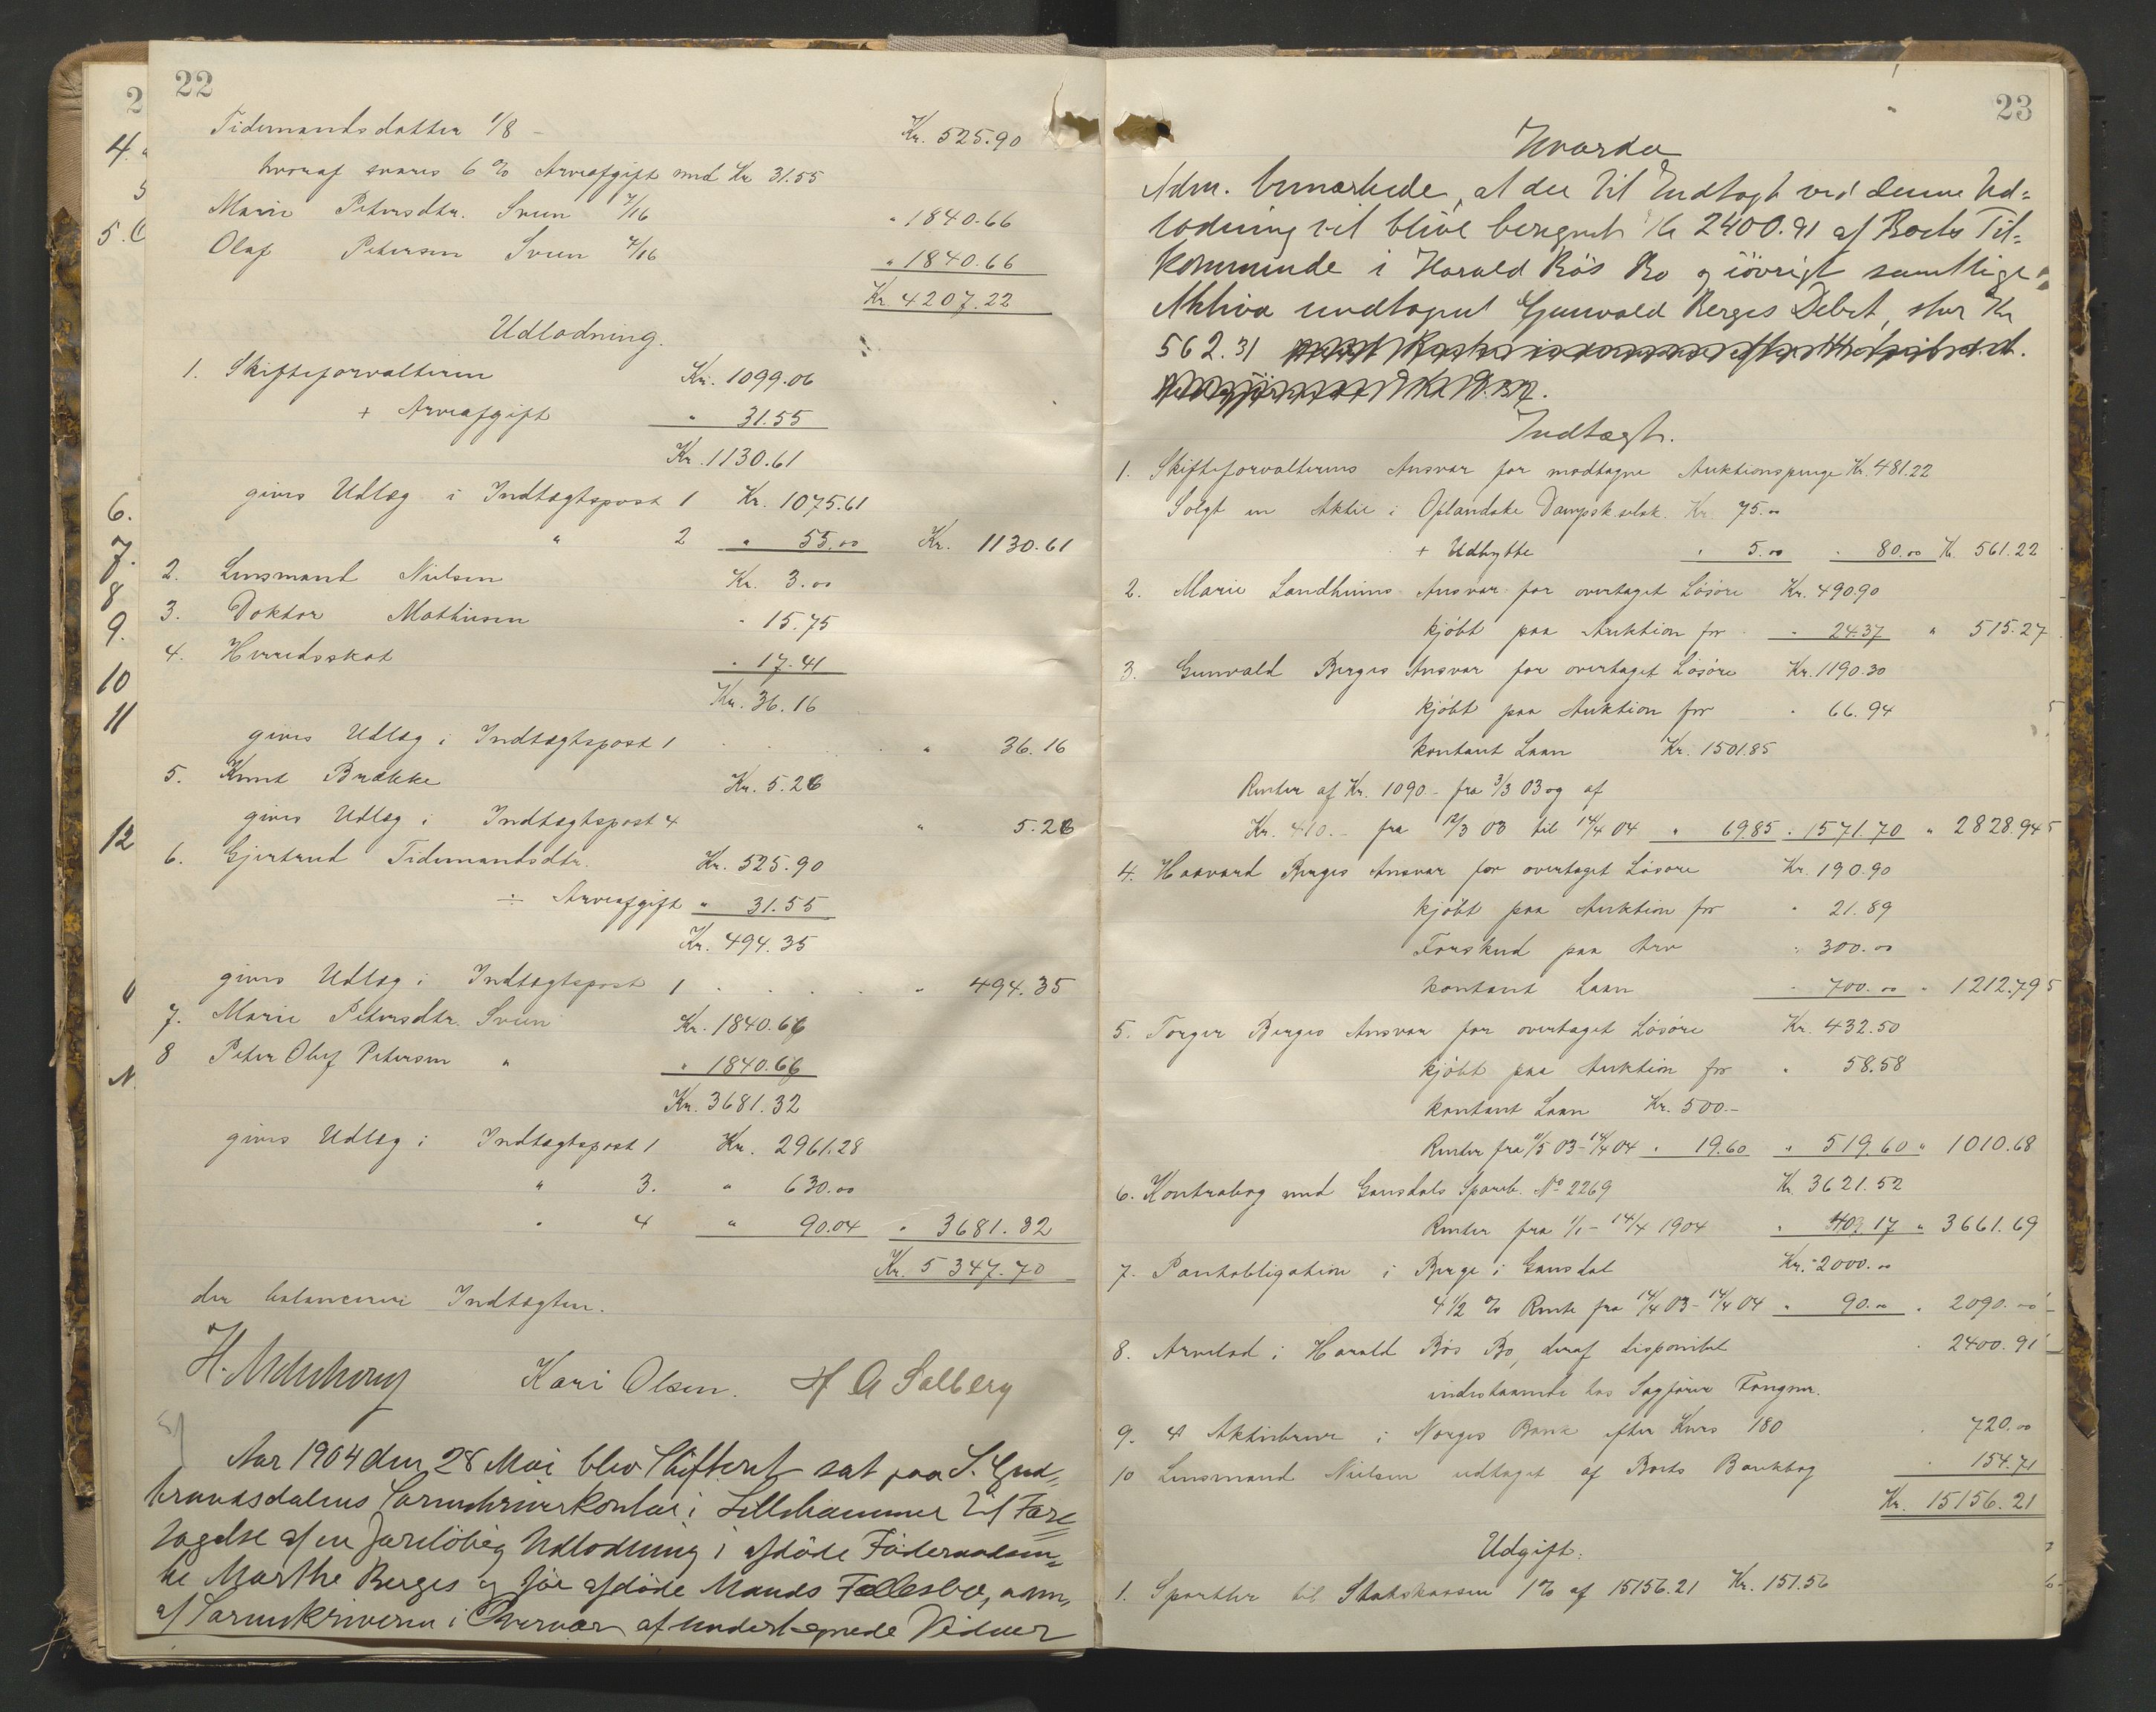 22
Tidemandsdatter 1/8 - Kr. 525.90
hvoraf svares 6 % Arveafgift med Kr 31.55
Marie Petersdtr. Sveen 7/16 " 1840.66
Olaf Petersen Sveen 7/16 " 1840.66
Kr 4207.22
Udlodning.
1. Skifteforvalteren Kr. 1099.06
+ Arveafgift " 31.55
Kr. 1130.61
gives Udlæg i Indtægtspost 1 Kr. 1075.61
" 2 " 55.00 Kr. 1130.61
2. Lensmand Nielsen Kr. 3.00
3. Doktor Mathiesen " 15.75
4. Herredsskat " 17.41
Kr. 36.16
gives Udlæg i Indtægtspost 1 " 36.16
5. Knut Brække Kr. 5.26
gives Udlæg i Indtægtspost 4 " 5.26
6. Gjertrud Tidemandsdtr. Kr. 525.90
÷ Arveafgift " 31.55
Kr. 494.35
gives Udlæg i Indtægtspost 1 " 494.35
7. Marie Petersdtr. Sveen Kr. 1840.66
8 Peter Oluf Petersen " " 1840.66
Kr. 3681.32
gives Udlæg i Indtægtspost 1 Kr. 2961.28
" 3. " 630.00
" 4 " 90.04 " 3681.32
Kr. 5347.70
der balancerer Indtægten.
Kari Olsen. H A Solberg
Aar 1904 den 28 Mai blev Skifteret sat paa S. Gud=
brandsdalens Sorenskriverkontor i Lillehammer til Fore=
tagelse af en foreløbig Udlodning i afdøde Føderaadsen=
ke Marthe Berges og før afdøde Mands Fællesbo, adm.
af Sorenskriveren i Overvær af undertegnede Vidner
23
Hvorda
Adm. bemærkede, at der til Indtægt ved denne Ud=
lodning vil blive beregnet Kr 2400.91 af Boets Til=
kommende i Harald Bøs Bo og iøvrigt samtlige
Aktiva undtaget Gunvald Berges Debet, stor Kr
562.31
Indtægt.
1. Skifteforvalterens Ansvar for modtagne Auktionspenge Kr. 481.22
Solgt en Aktie i Oplandske Dampsk.selsk. Kr 75.00
+ Udbytte " 5.00 " 80.00 Kr. 561.22
2. Marie Landheims Ansvar for overtaget Løsøre Kr. 490.90
kjøbt paa Auktion for " 24.37 " 515.27
3. Gunvald Berges Ansvar for overtaget Løsøre Kr. 1190.30
kjøbt paa Auktion for " 66.94
kontant Laan Kr. 1501.85
Renter af Kr. 1090.- fra 3/3 03 og af
Kr. 410.- fra 12/3 03 til 14/4 04 " 69.85 " 1571.70 " 2828.94
4. Haavard Berges Ansvar for overtaget Løsøre Kr. 190.90
kjøbt paa Auktion for " 21.89
Forskud paa Arv " 300.00
kontant Laan " 700.00 " 1212.79
5. Torger Berges Ansvar for overtaget Løsøre Kr. 432.50
kjøbt paa Auktion for " 58.58
kontant Laan Kr. 500.-
Renter fra 11/5 03 - 14/4 04 " 19.60 " 519.60 " 1010.68
6. Kontrabog med Gausdals Spareb. No 2269 Kr. 3621.52
Renter fra 1/1 - 14/4 1904 " 40.17 " 3661.69
7. Pantobligation i Berge i Gausdal Kr. 2000.00
4 1/2 % Rente fra 14/4 03 - 14/4 04 " 90.00 " 2090.00
8. Arvelod i Harald Bøs Bo, deraf disponibel " 2400.91
indestaaende hos Sagfører Fougner.
9. 4 Aktiebreve i Norges Bank efter Kurs 180 " 720.00
10 Lensmand Nielsen udtaget af Boets Bankbog " 154.71
Kr. 15156.21
Udgift.
1. Sportler til Statskassen 1% af 15156.21 Kr. 151.56